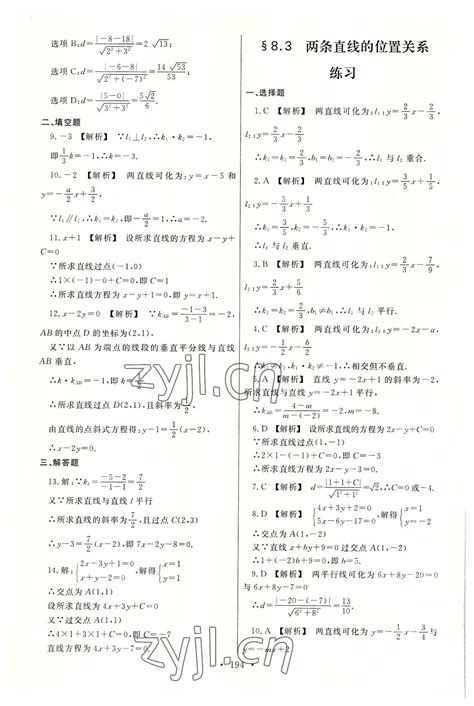 选项 B:d=|-8-18|/√(2²+3²)=2√13;
选项 C:d=|-6-8|/√(2²+(-7)²)=14√53/53
选项 D:d=|5-0|/√(3²+4²)=5√2/6.
二、填空题
9.-3 【解析】 ∵l₁⊥l₂,∴k₁·k₂=-1,
即1/3k=-1,∴k=-3.
10.-2 【解析】 两直线可化为:y=x-5和
y=-a/2x+3/2,
∵l₁∥l₂,∴k₁=k₂,即-a/2=1,∴a=-2.
11.x+1 【解析】 设所求直线的方程为x-y+
C=0
∵所求直线过点(-1,0)
∴1×(-1)-0+C=0,即C=1
∴所求直线方程为x-y+1=0,即y=x+1.
12.x+2y-4=0 【解析】 ∵k_AB=(-1-3)/(3-1)=-2,
AB的中点D的坐标为(2,1).
又∵以AB为端点的线段的垂直平分线与直线
AB垂直,
∴k·k_AB=-1,即k=1/2
∴所求直线过点D(2,1),且斜率为1/2
由直线的点斜式方程得:y-1=1/2(x-2)
即x-2y=0.
三、解答题
13.解:∵k₁=(-5-2)/(-1-1)=7/2
又∵所求直线与直线l平行
∴所求直线的斜率为7/2,且过点C(2,3)
∴y-3=7/2(x-2),即7x-2y-8=0.
14.解:{2x-3y+1=0 x+y-2=0 ⇒{x=1 y=1
∴交点为A(1,1)
设所求直线的方程为4x+3y+C=0
又∵直线过点A(1,1)
∴4×1+3×1+C=0,即C=-7
直线方程为4x+3y-7=0.
§8.3 两条直线的位置关系
练习
一、选择题
1.C 【解析】 两直线可化为:l₁:y=2/3x-2/3,
l₂:y=2/3x-2/3
∵k₁=k₂=2/3,b₁=b₂=-2/3,∴l₁与l₂重合.
2.A 【解析】 两直线可化为:l₁:y=3/5x+1/5,
l₂:
∴l₁与l₂垂直.
3.B 【解析】 两直线可化为:l₁:y=2/3x-7/9,
l₂:
∵k₁=k₂,b₁≠b₂,∴l₁与l₂平行.
4.D 【解析】 两直线可化为:l₁:y=-2x-a,
l₂:
∴相交但不垂直.
5.A 【解析】 直线y=-2x+1的斜率为-2,
∴k_AB=(4-m)/(m-(-2))=-2,∴m=-8.
6.D 【解析】 设所求直线的方程为2x-y+C=0
又∵所求直线过点(1,-2)
∴2×1-(-2)+C=0,即C=-4
∴所求直线的方程为2x-y-4=0.
7.C 【解析】 d=|1+1+C|/√(1²+1²)=√2,
8.D 【解析】 {4x+3y+2=0 5x-6y-17=0 ⇒{x=1 y=-2
∴交点为A(1,-2)
又∵直线
9.D 【解析】 两平行线可化为6x+8y-20=0
与6x+8y-7=0
∴d=|-20-(-7)|/√(6²+8²)=13/10.
10.A 【解析】 两直线可化为y=-1/2x-3/4与
y=-mx+2
·194·
zyjl.cn
zyjl.cn